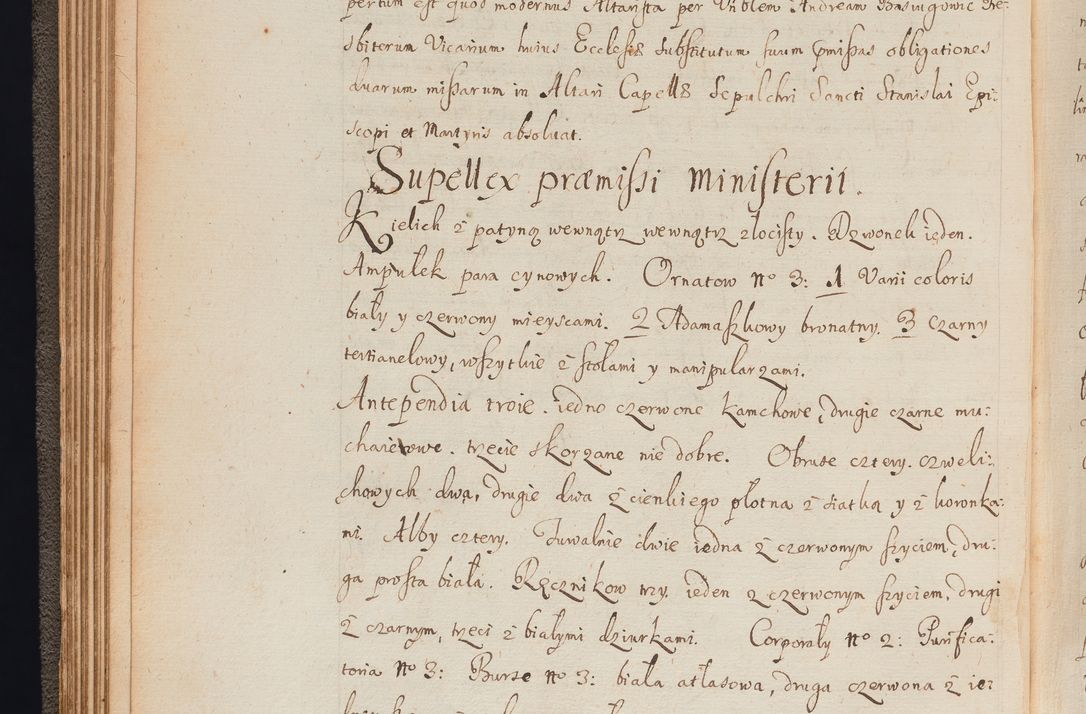 pertum est quod modernus Altarista per Vnblem Andream Basingowic Pre:
sbiterum Vicarium huius Ecclesiæ substitutum suum præmissas obligationes
duarum missarum in Altari Capellæ Sepulchri Sancti Stanislai Epi:
scopi et Martyris absoluat.
Supellex præmissi Ministerii.
Kielich z patyną wewnątrz wewnątrz złocisty. Dzwonek ieden.
Ampułek para cynowych. Ornatow Nº 3: 1 Varii coloris
biały y czerwony mieyscami. 2 Adamaszkowy bronatny. 3 Czarny
tertianelowy, wszytkie z stołami y manipularzami.
Antependia troie. iedno czerwone kamchowe, drugie czarne mu:
chaierowe. trzecie skorzane nie dobre. Obruse cztery. czweli:
chowych dwa, drugie dwa z cienkiego płotna z siatką y z koronka:
mi. Alby cztery. Tuwalnie dwie iedna z czerwonym szyciem, dru:
ga prosta biała. Ręcznikow trzy. ieden z czerwonym szyciem, drugi
z czarnym, trzeci z białymi dziurkami. Corporały Nº 2: Purifica:
toria Nº 3: Burse Nº 3: biała atłasowa, druga czerwona z ie: